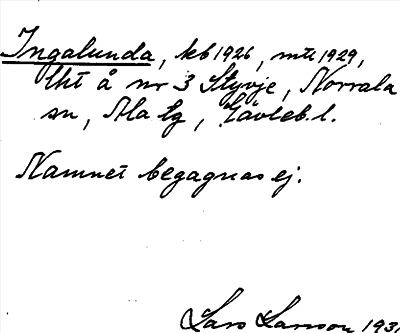 Ingalunda, kb 1926, mtl 1929,
lht å nr 3 Styvje, Norrala
sn, Ala tg, Gävleb. l.
Namnet begagnas ej.
Lars Larsson 193